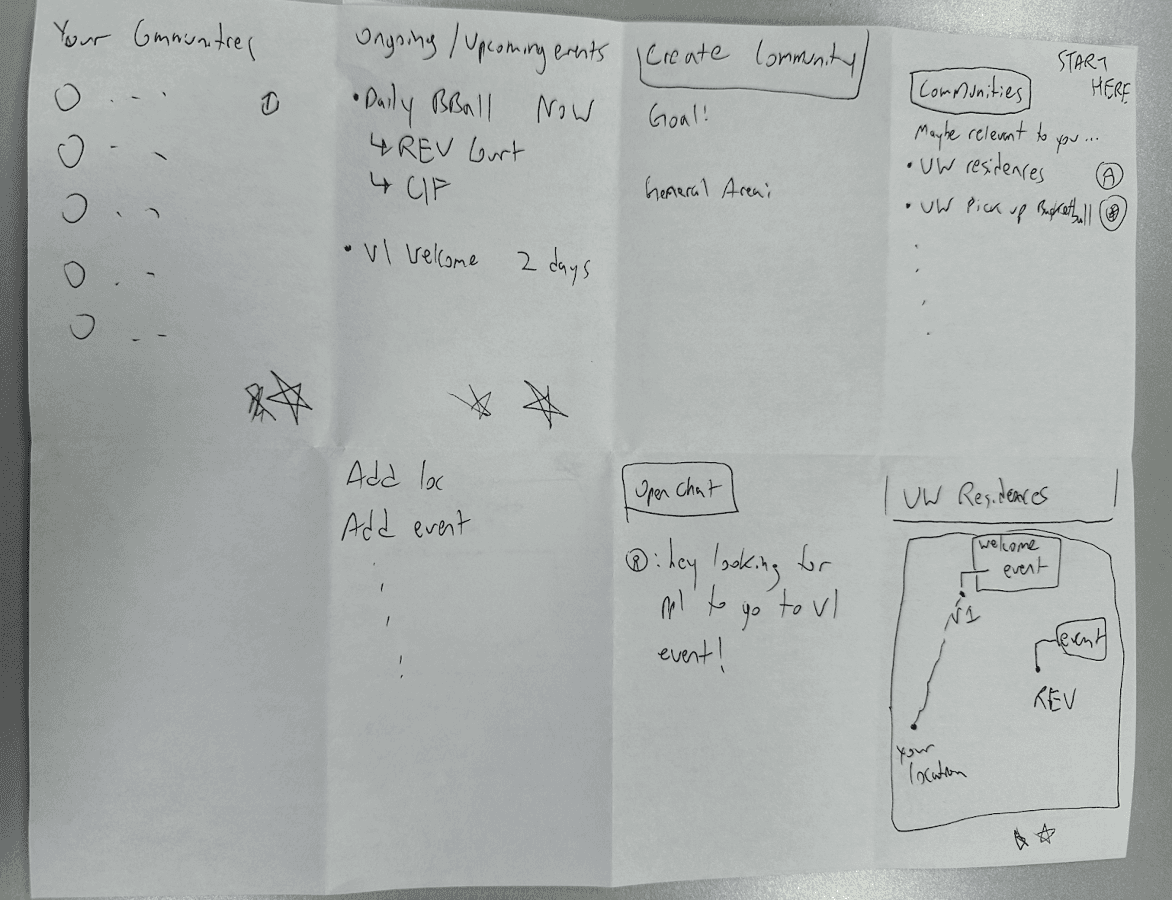 Your Communities
1
Ongoing / Upcoming events
• Daily BBall NOW
↳ REV Court
↳ CIF
• V1 Welcome 2 days
Create Community
Goal:
General Area:
START
HERE
Communities
Maybe relevant to you...
• UW residences A
• UW Pick up Basketball
Add loc
Add event
Open Chat
R: hey looking for
to go to V1
event!
UW Residences
welcome
event
V1
event
REV
Your
location